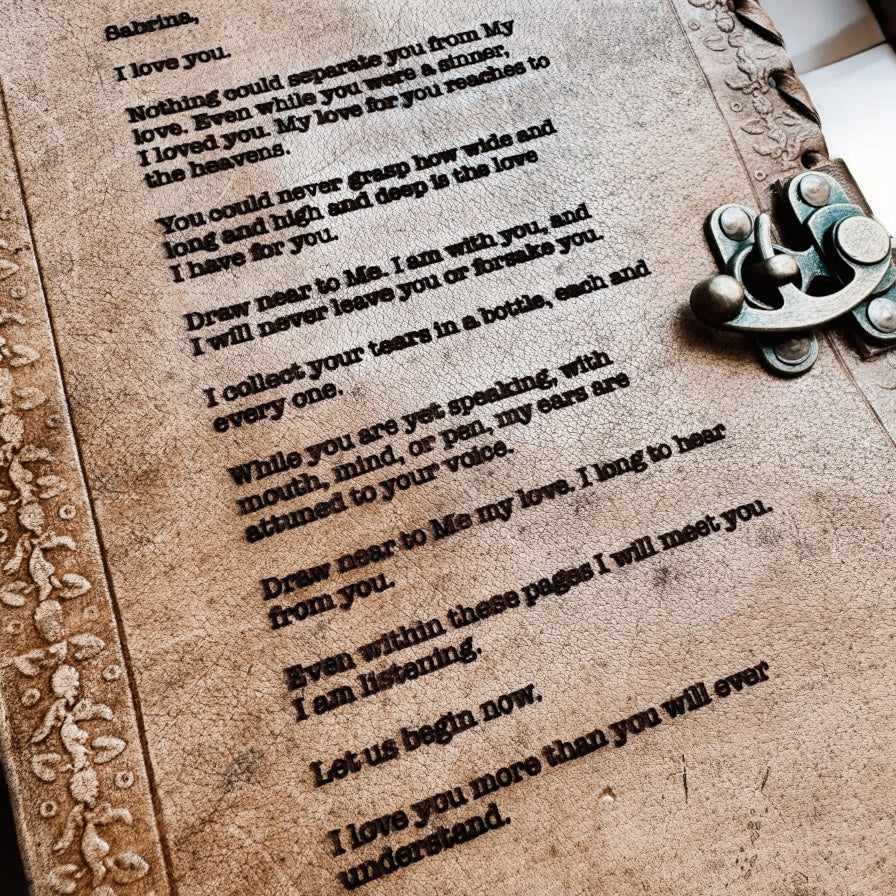 Sabrina,
I love you.
Nothing could separate you from My
love. Even while you were a sinner,
I loved you. My love for you reaches to
the heavens.
You could never grasp how wide and
long and high and deep is the love
I have for you.
Draw near to Me. I am with you, and
I will never leave you or forsake you.
I collect your tears in a bottle, each and
every one.
While you are yet speaking, with
mouth, mind, or pen, my ears are
attuned to your voice.
Draw near to Me my love. I long to hear
from you.
Even within these pages I will meet you.
I am listening.
Let us begin now.
I love you more than you will ever
understand.